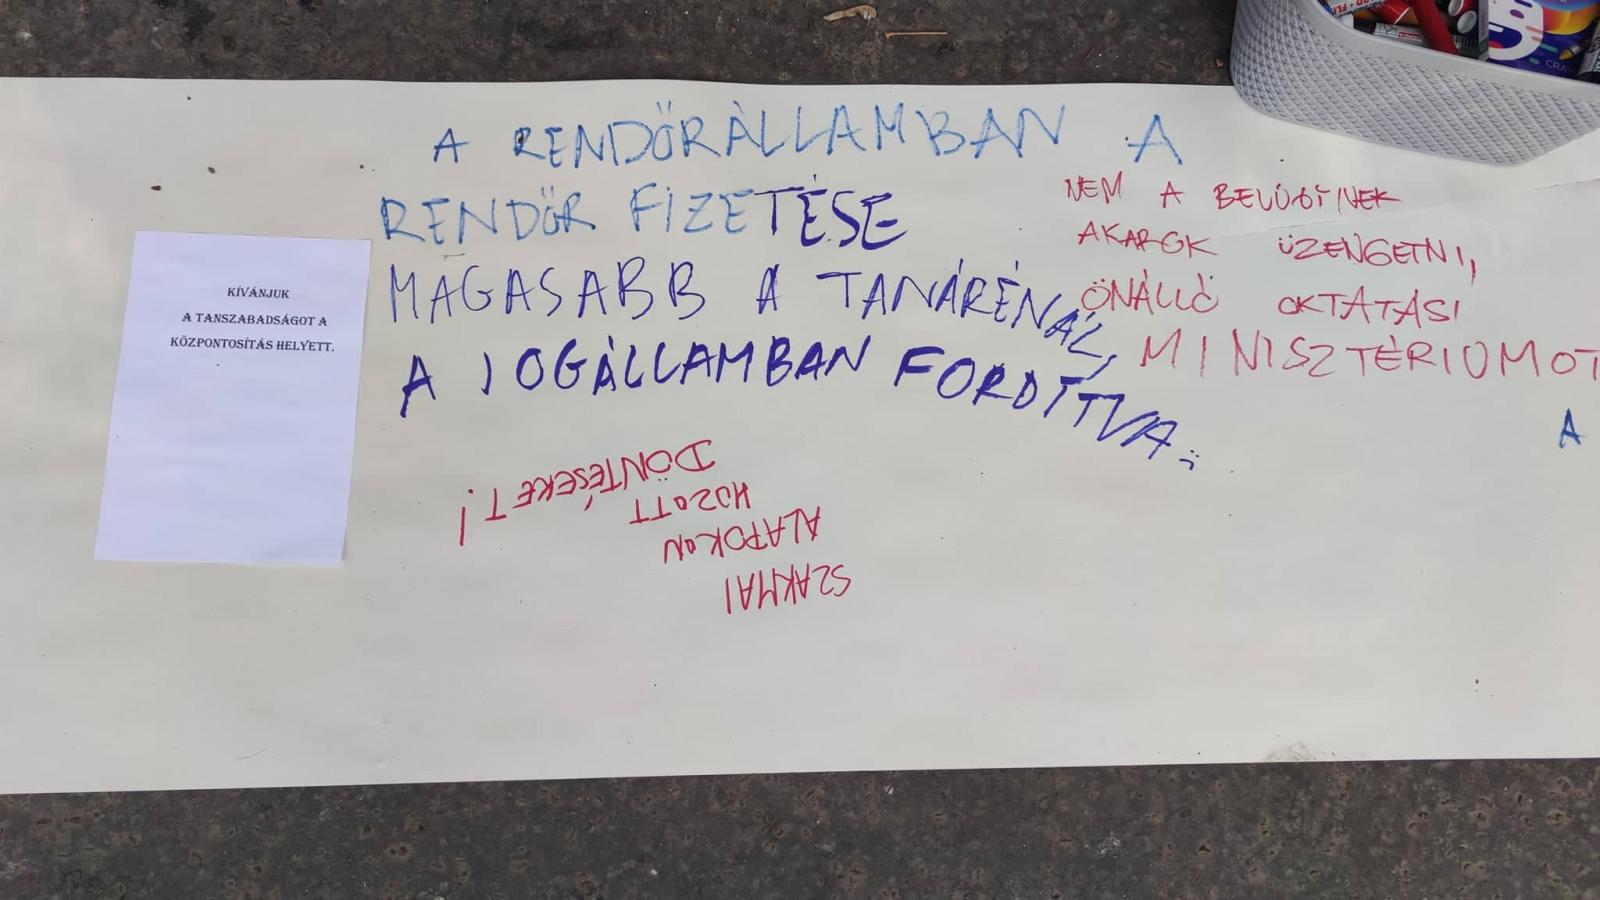 KÍVÁNJUK
A TANSZABADSÁGOT A
KÖZPONTOSÍTÁS HELYETT.
A RENDŐRÁLLAMBAN A
RENDŐR FIZETÉSE
MAGASABB A TANÁRÉNÁL,
A JOGÁLLAMBAN FORDÍTVA.
NEM A BELÜGYINEK
AKAROK ÜZENGETNI,
ÖNÁLLÓ OKTATÁSI
MINISZTÉRIUMOT
A
SZAKMAI
ALAPOKON
HOZOTT
DÖNTÉSEKET!